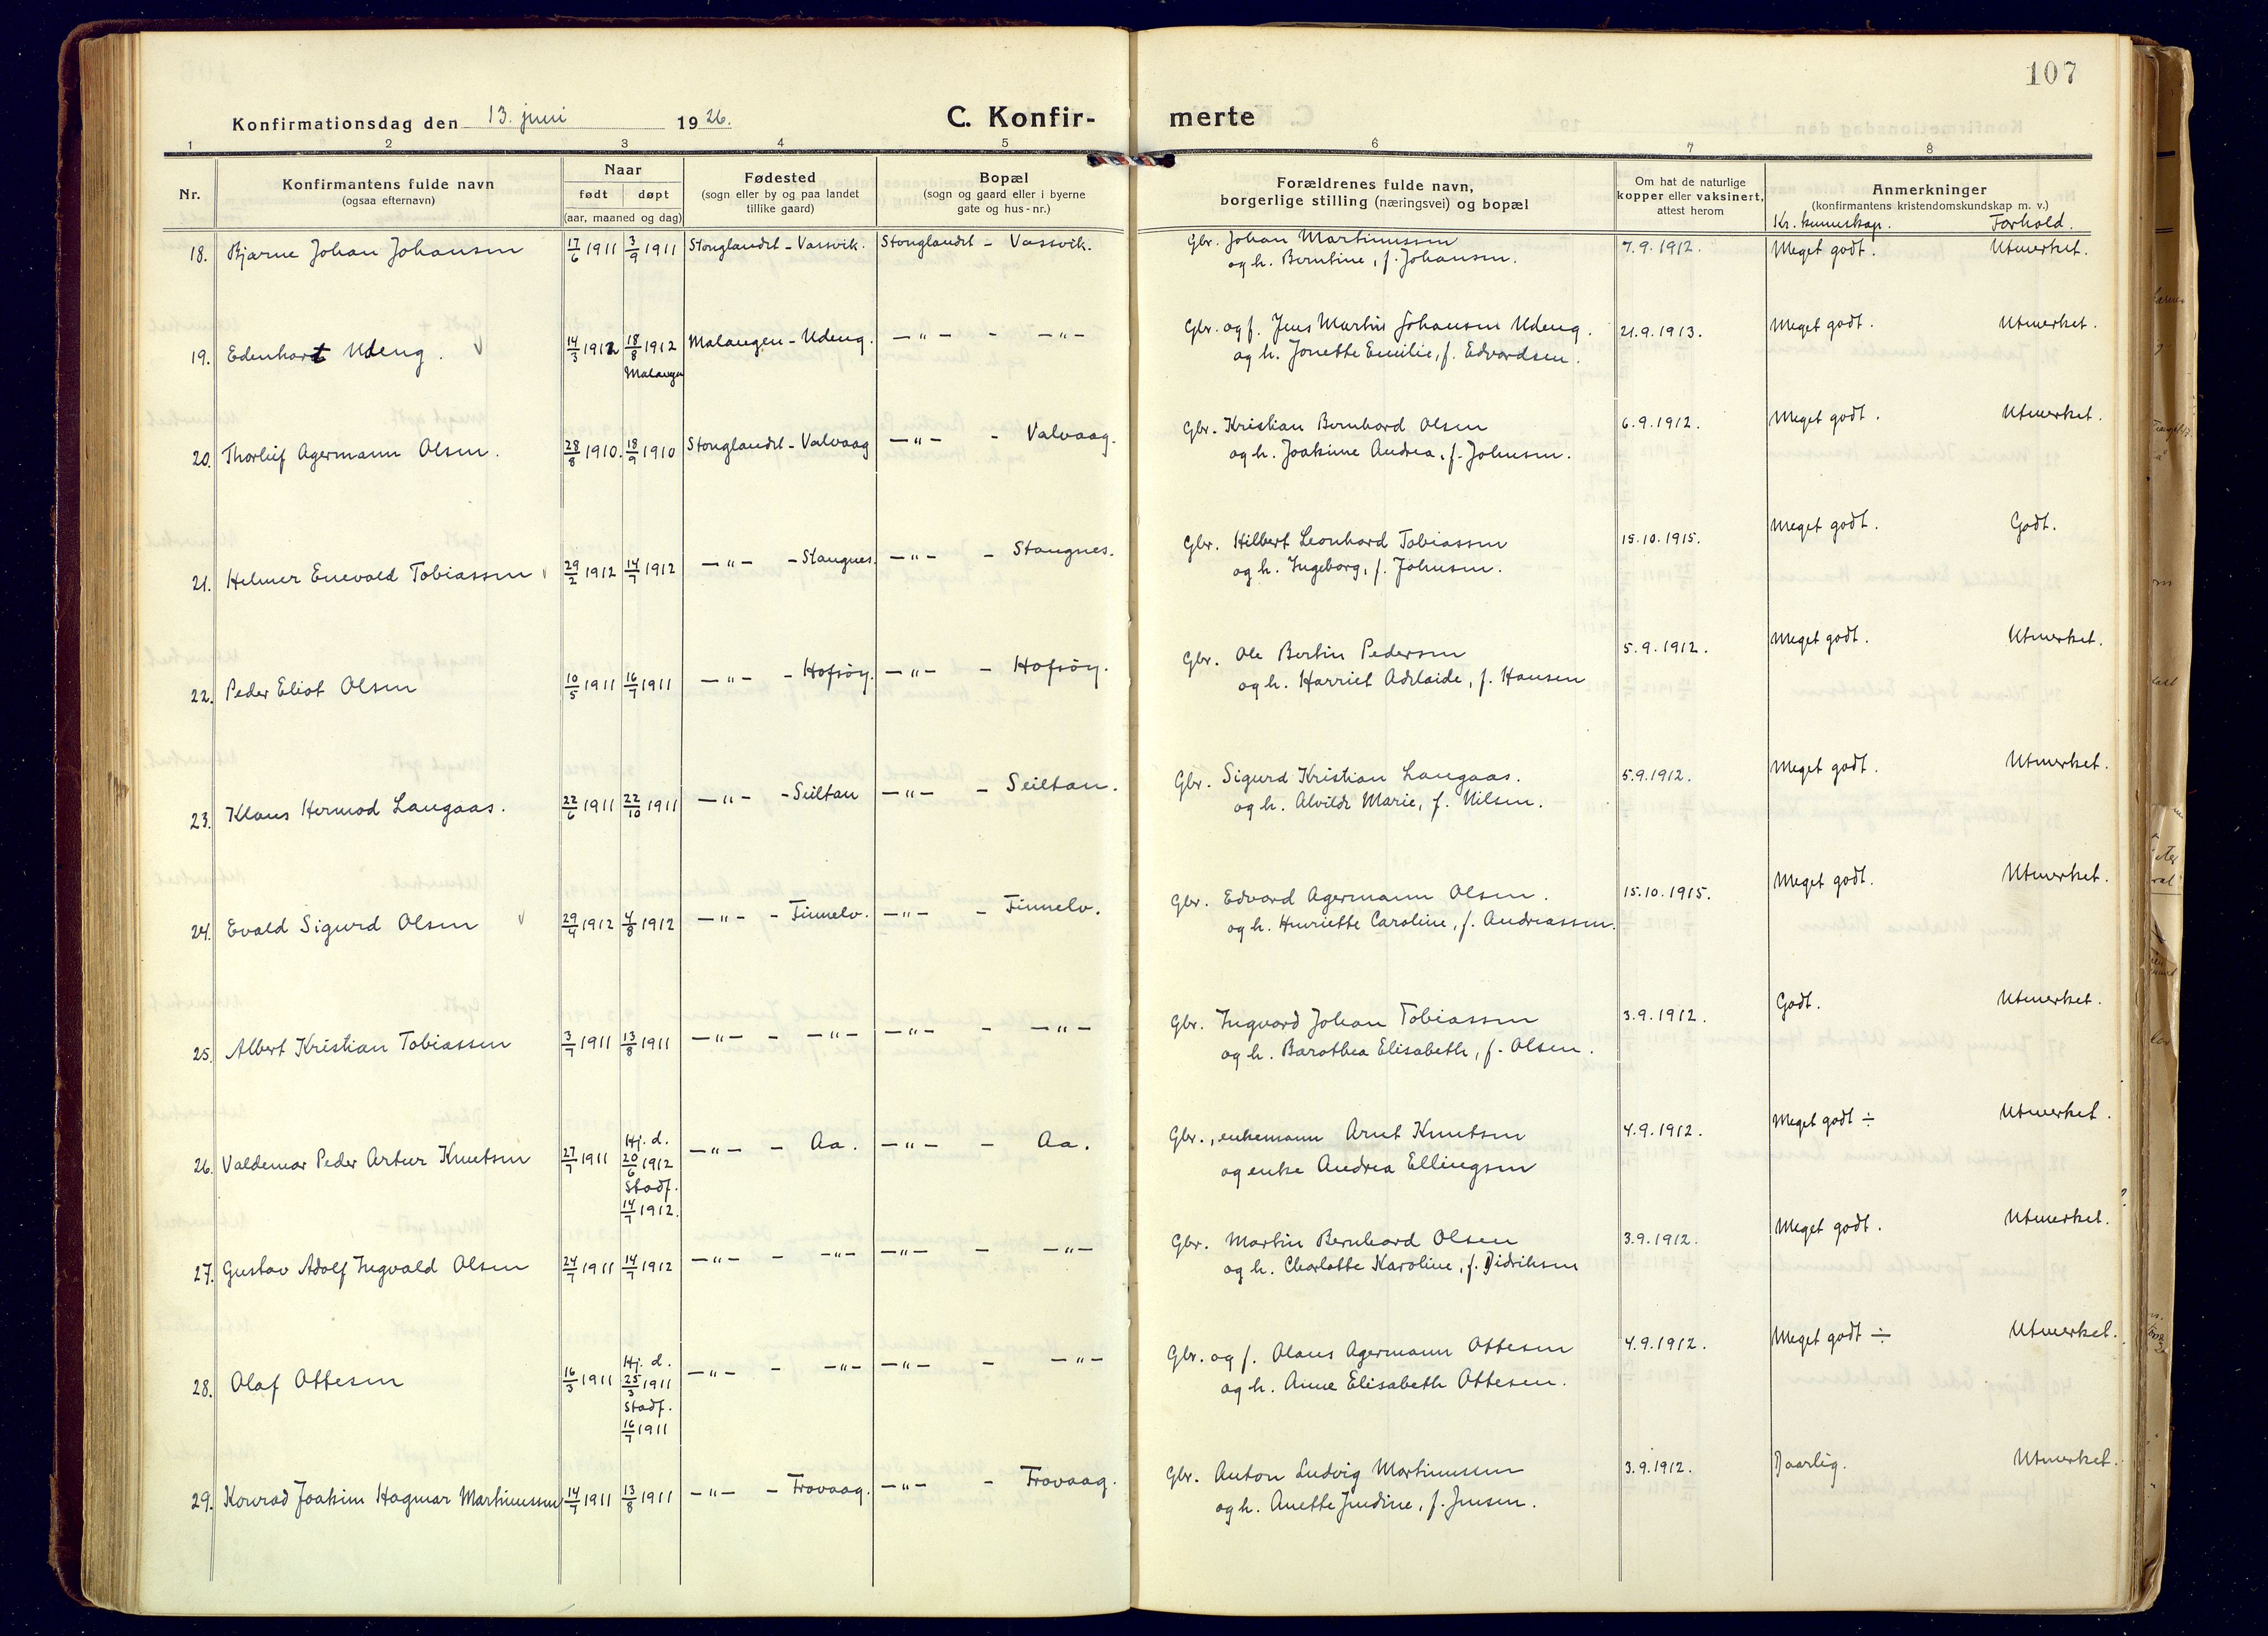 107
Konfirmationsdag den 13. juni 1926.
C. Konfir- merte
1 2 3 4 5 6 7 8
Nr.
Konfirmantens fulde navn
(ogsaa efternavn)
Naar
født døpt
(aar, maaned og dag)
Fødested
(sogn eller by og paa landet
tillike gaard)
Bopæl
(sogn og gaard eller i byerne
gate og hus-nr.)
Forældrenes fulde navn,
borgerlige stilling (næringsvei) og bopæl
Om hat de naturlige
kopper eller vaksinert,
attest herom
Anmerkninger
(konfirmantens kristendomskundskap m. v.)
Kr. kunnskap. Forhold.
18. Bjarne Johan Johansen 17/6 1911 3/9 1911 Stonglandet - Vassvik. Stonglandet - Vassvik. Gbr. Johan Martinussen 7.9.1912. Meget godt. Utmerket.
og h. Berntine, f. Johansen.
19. Edenhart Udeng. 14/3 1912 18/8 1912 Malangen - Udeng. -"- - -"- Gbr. og f. Jens Martin Johansen Udeng. 21.9.1913. Meget godt. Utmerket.
Malangen og h. Jonette Emilie, f. Edvardsen.
20. Thorleif Agermann Olsen. 28/8 1910. 18/9 1910 Stonglandet - Valvaag -"- - Valvaag. Gbr. Kristian Bernhard Olsen 6.9.1912. Meget godt. Utmerket.
og h. Joakime Andrea, f. Johnsen.
21. Helmer Enevald Tobiassen 29/2 1912 14/7 1912 -"- - Stangnes. -"- - Stangnes. Gbr. Hilbert Leonhard Tobiassen 15.10.1915. Meget godt. Godt.
og h. Ingeborg, f. Johnsen.
22. Peder Eliot Olsen 10/5 1911 16/7 1911 -"- - Hofsøy. -"- - Hofsøy. Gbr. Ole Bertin Pedersen 5.9.1912. Meget godt. Utmerket.
og h. Harriet Adelaide, f. Hansen
23. Klaus Hermod Langaas. 22/6 1911 22/10 1911 -"- - Seiltan -"- - Seiltan. Gbr. Sigurd Kristian Langaas. 5.9.1912. Meget godt. Utmerket.
og h. Alvilde Marie, f. Nilsen.
24. Evald Sigurd Olsen 29/4 1912 4/8 1912 -"- - Finnelv. -"- - Finnelv. Gbr. Edvard Agermann Olsen. 15.10.1915. Meget godt. Utmerket.
og h. Henriette Caroline, f. Andreassen.
25. Albert Kristian Tobiassen 3/7 1911 13/8 1911 -"- - -"- -"- - -"- Gbr. Ingvard Johan Tobiassen 3.9.1912. Godt. Utmerket.
og h. Barothea Elisabeth, f. Olsen.
26. Valdemar Peder Artur Knutsen 27/7 1911 Hj. d. 20/6 1912 Stadf. 14/7 1912. -"- - Aa. -"- - Aa. Gbr., enkemann Arnt Knutsen 4.9.1912. Meget godt ÷ Utmerket.
og enke Andrea Ellingsen
27. Gustav Adolf Ingvald Olsen 24/7 1911 14/7 1912 -"- - -"- -"- - -"- Gbr. Martin Bernhard Olsen 3.9.1912. Meget godt. Utmerket.
og h. Charlotte Karoline, f. Didriksen
28. Olaf Ottesen 16/3 1911 Hj. d. 25/3 1911 Stadf. 16/7 1911 -"- - -"- -"- - -"- Gbr. og f. Olaus Agermann Ottesen 4.9.1912. Meget godt ÷ Utmerket.
og h. Anne Elisabeth Ottesen.
29. Konrad Joakim Hagmar Martinussen 14/7 1911 13/8 1911 -"- - Trovaag. -"- - Trovaag. Gbr. Anton Ludvig Martinussen 3.9.1912. Daarlig. Utmerket.
og h. Anette Jendine, f. Jensen.